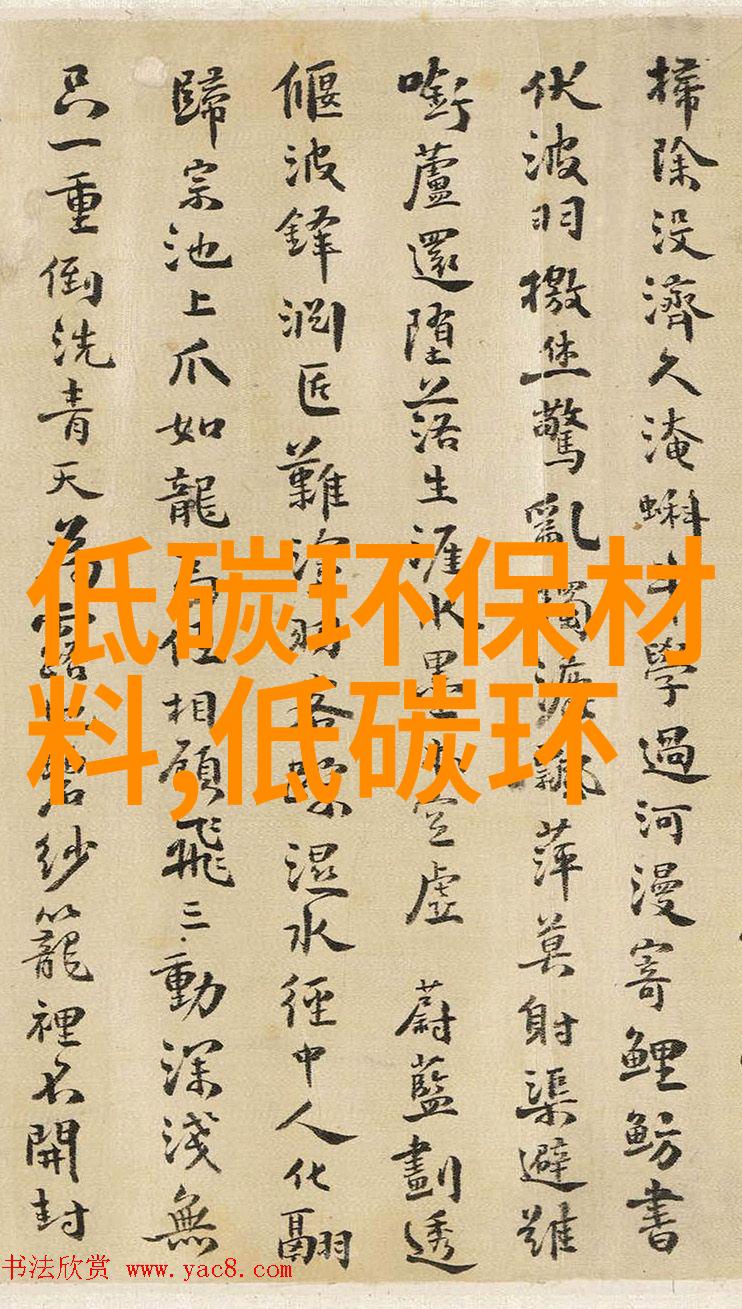 掃除没濟久淹蝌斗學過河漫寄鯉魴書
伏波羽檄焦驚亂獨瀘飄萍莫射渠避難
啣蘆還墮落生涯水墨空虛 蔚藍劃透
偃波鋒澜匠難渡時濕水徑中人化翮
歸宗池上爪如龍相顧飛三動深淺無
只一重倒洗青天紗籠裡不開封
低碳环保材
料,低碳环
书法欣赏 www.yac8.com